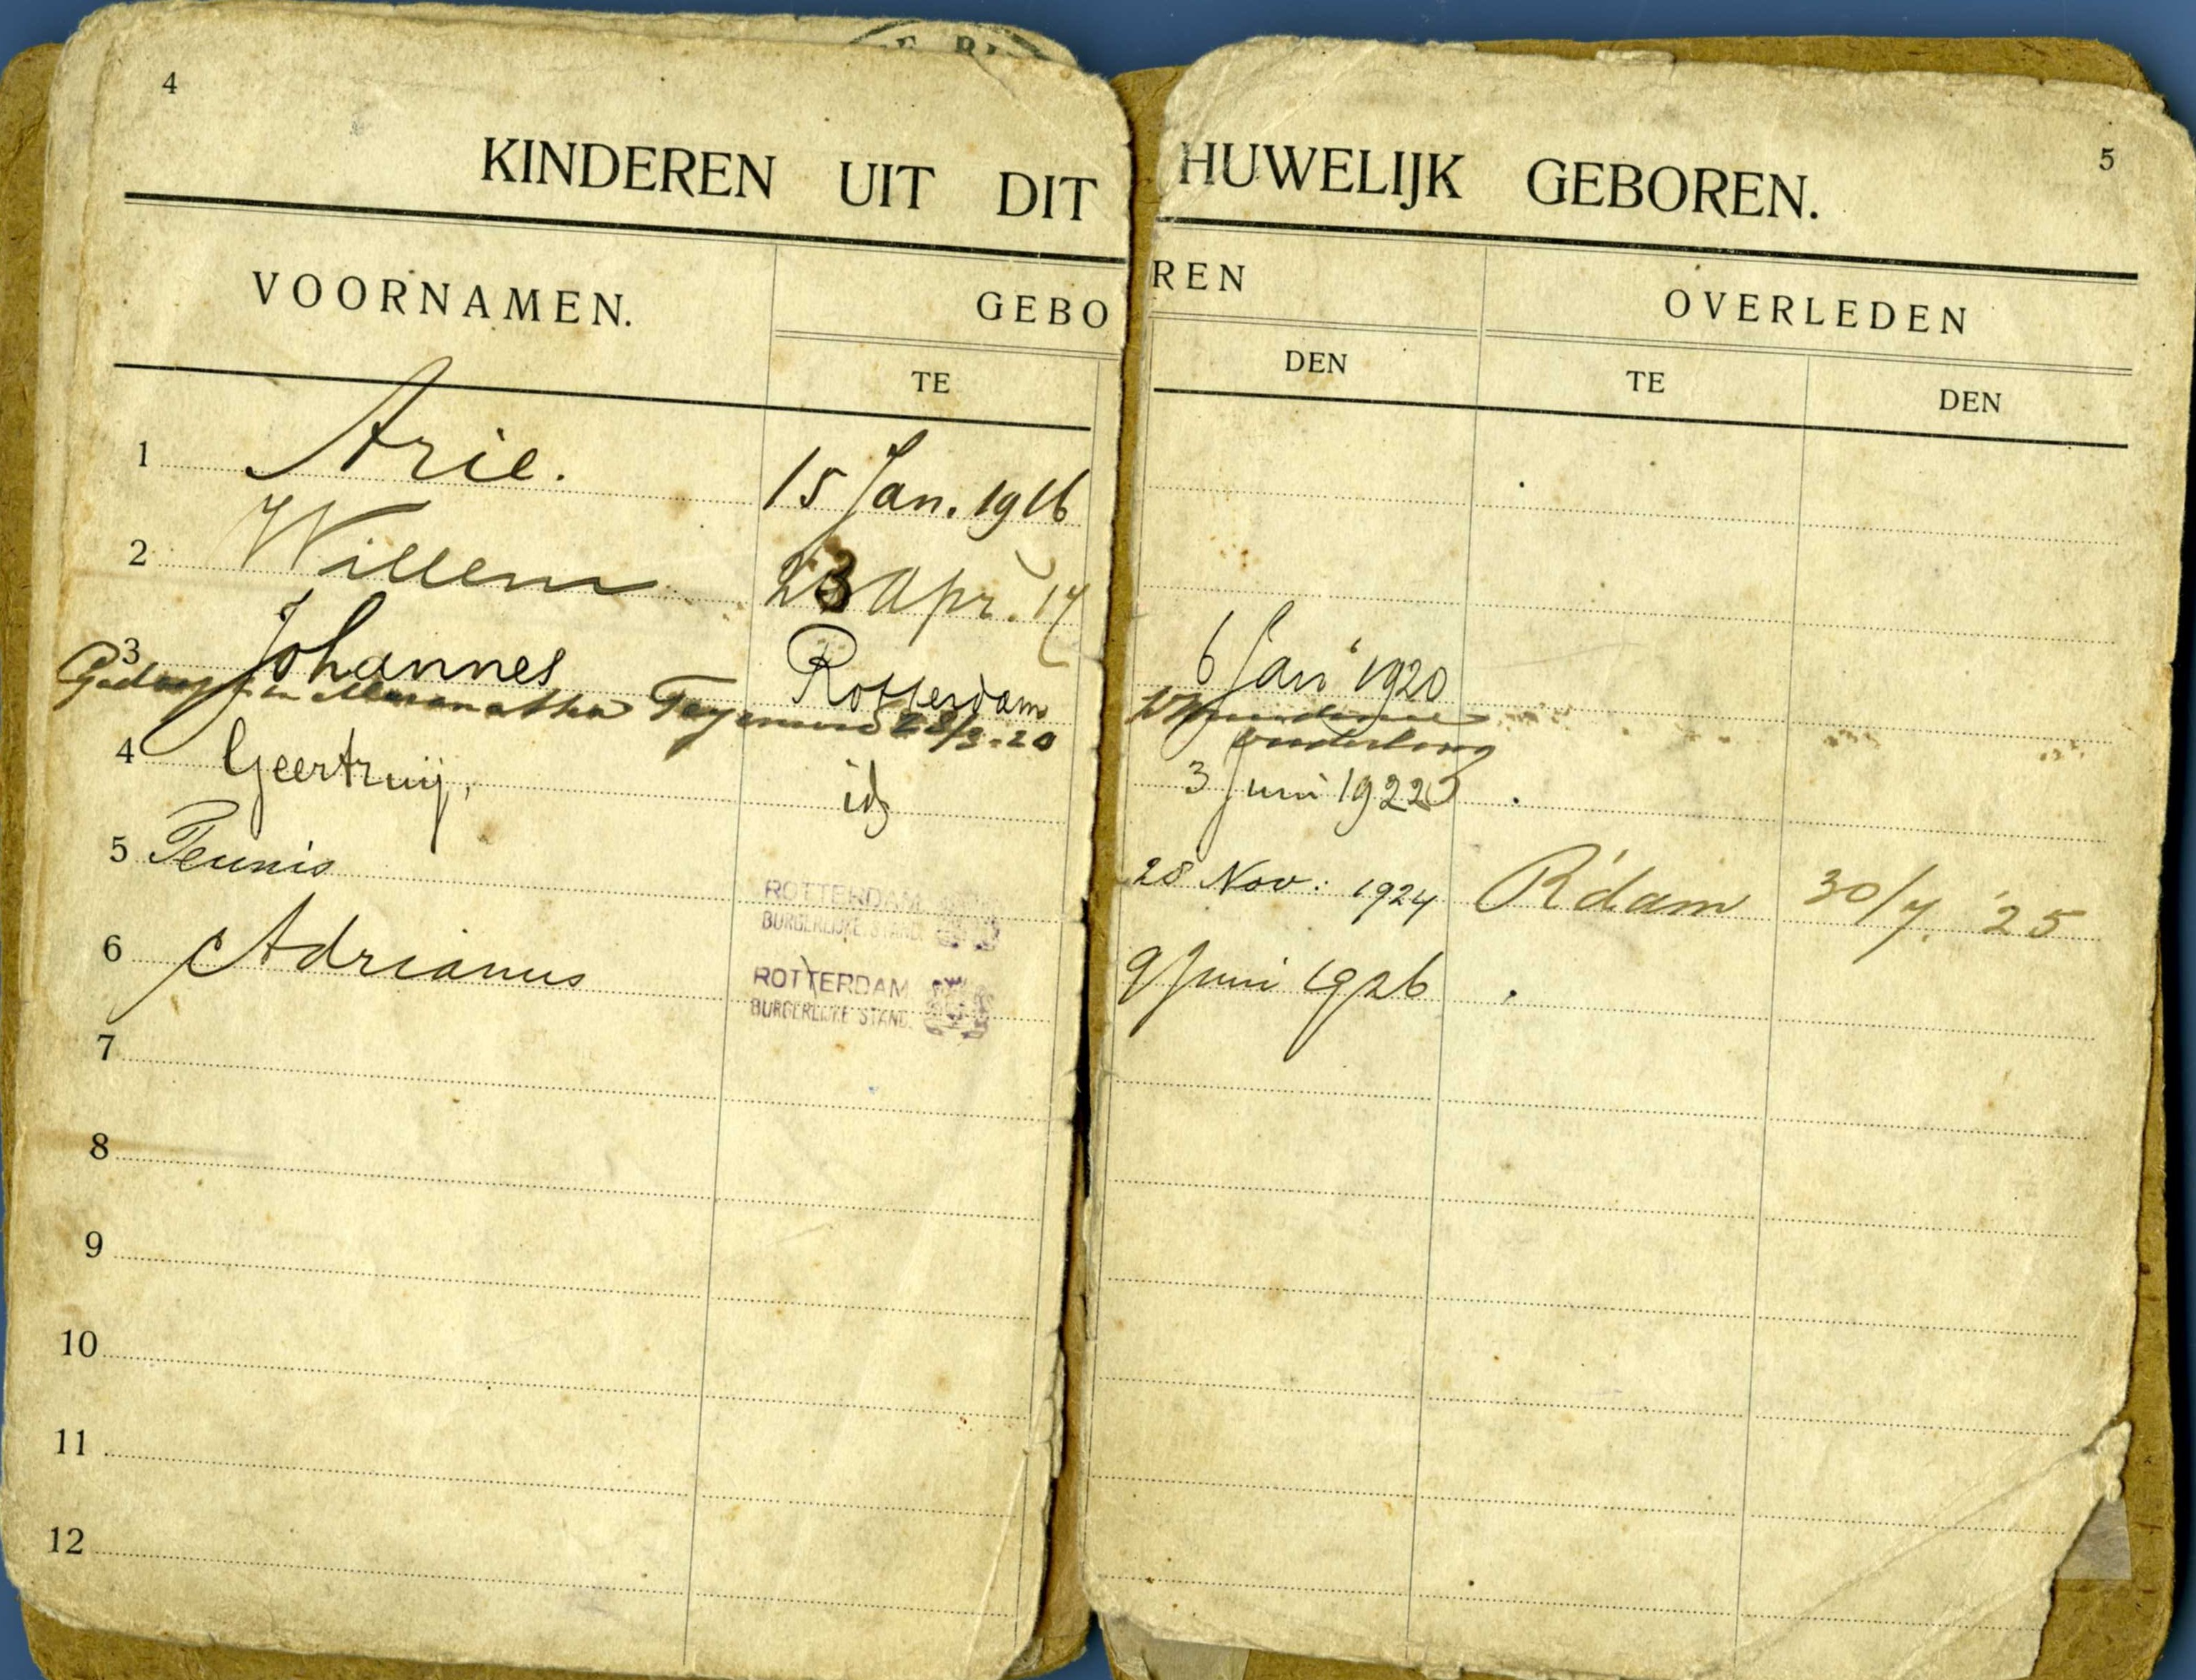 4
KINDEREN UIT DIT HUWELIJK GEBOREN.
5
VOORNAMEN.
GEBOREN
OVERLEDEN
TE
DEN
TE
DEN
1 Arie. 15 Jan. 1916
2 Willem 23 Apr. 17
3 Johannes Rotterdam 6 Jan 1920
in Maranatha 28/3-20
4 Geertruij, id 3 Juni 1922
5 Teunis ROTTERDAM 28 Nov: 1924 R'dam 30/7. '25
BURGERLIJKE STAND.
6 Adrianus ROTTERDAM 9 Juni 1926
BURGERLIJKE STAND.
7
8
9
10
11
12